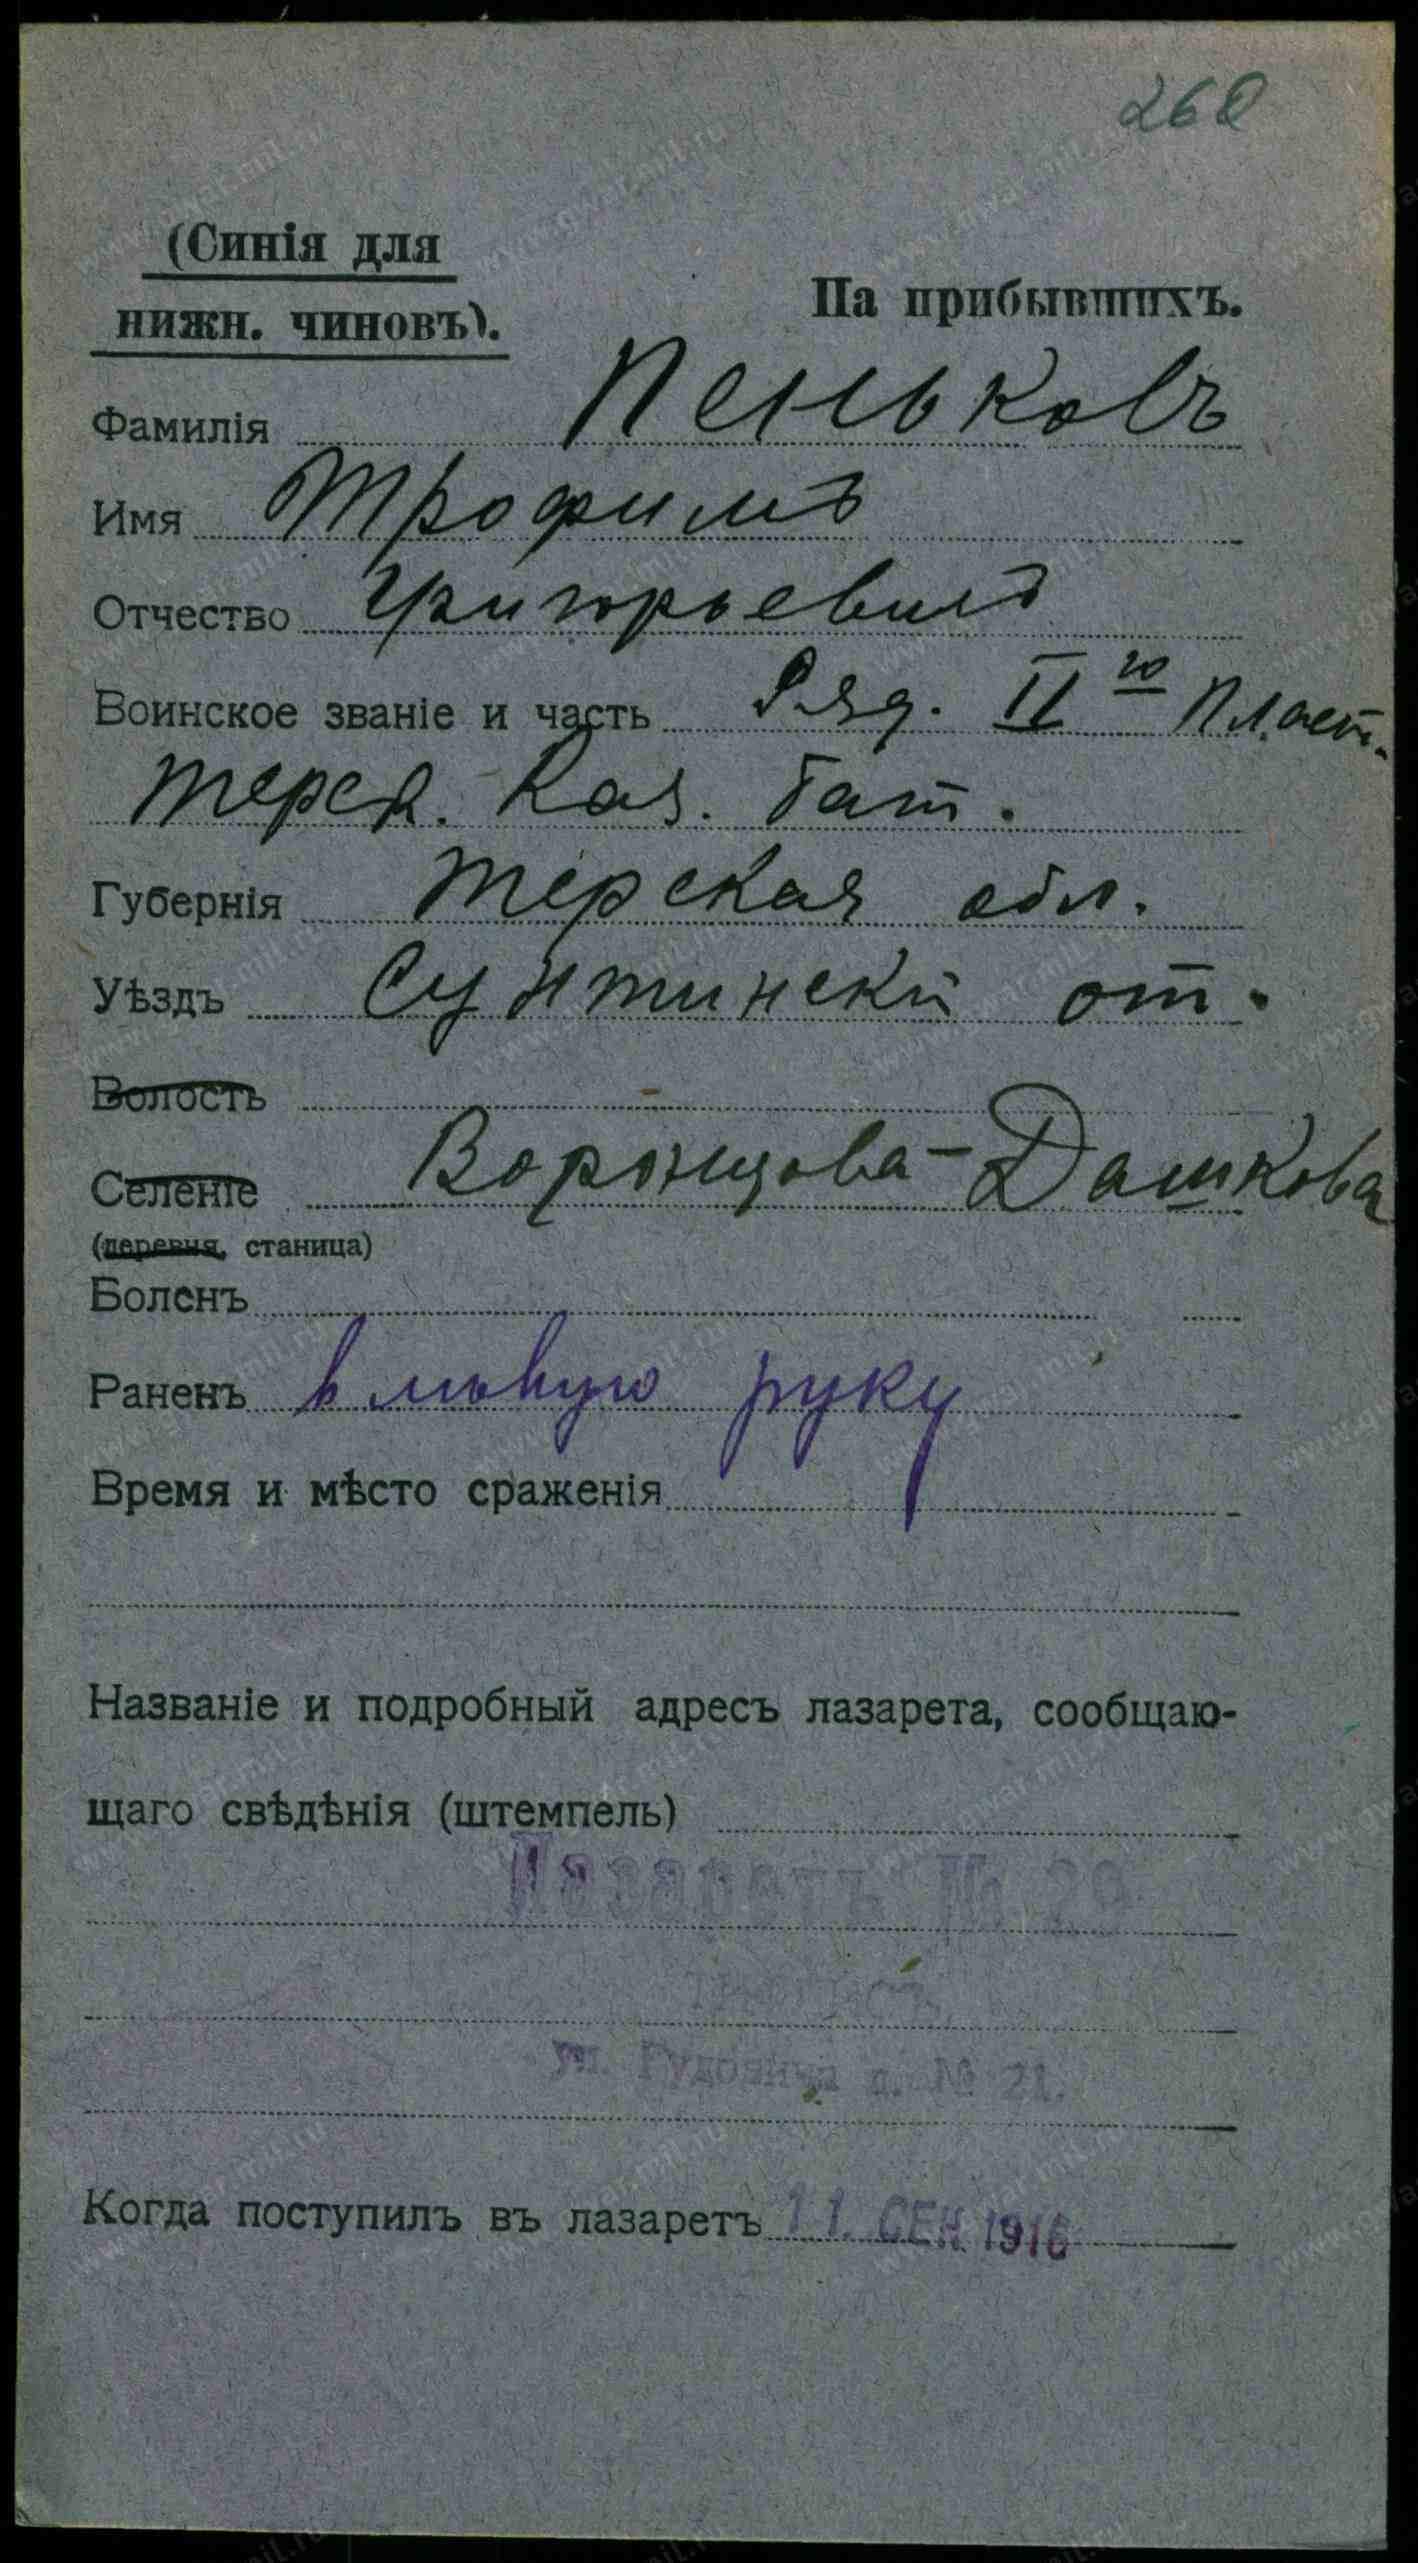 260
(Синія для
нижн. чиновъ).
На прибывшихъ.
Фамилія Пеньковъ
Имя Трофимъ
Отчество Григорьевичъ
Воинское званіе и часть Ряд. II го Пласт.
Терск. Каз. бат.
Губернія Терская обл.
Уѣздъ Сунжинскй от.
Волость
Селеніе Воронцова-Дашкова
(деревня, станица)
Боленъ
Раненъ в лѣвую руку
Время и мѣсто сраженія
Названіе и подробный адресъ лазарета, сообщаю-
щаго свѣдѣнія (штемпель)
Лазаретъ № 29
ул. Гудовича д. № 21.
Когда поступилъ въ лазаретъ 11. СЕН. 1916